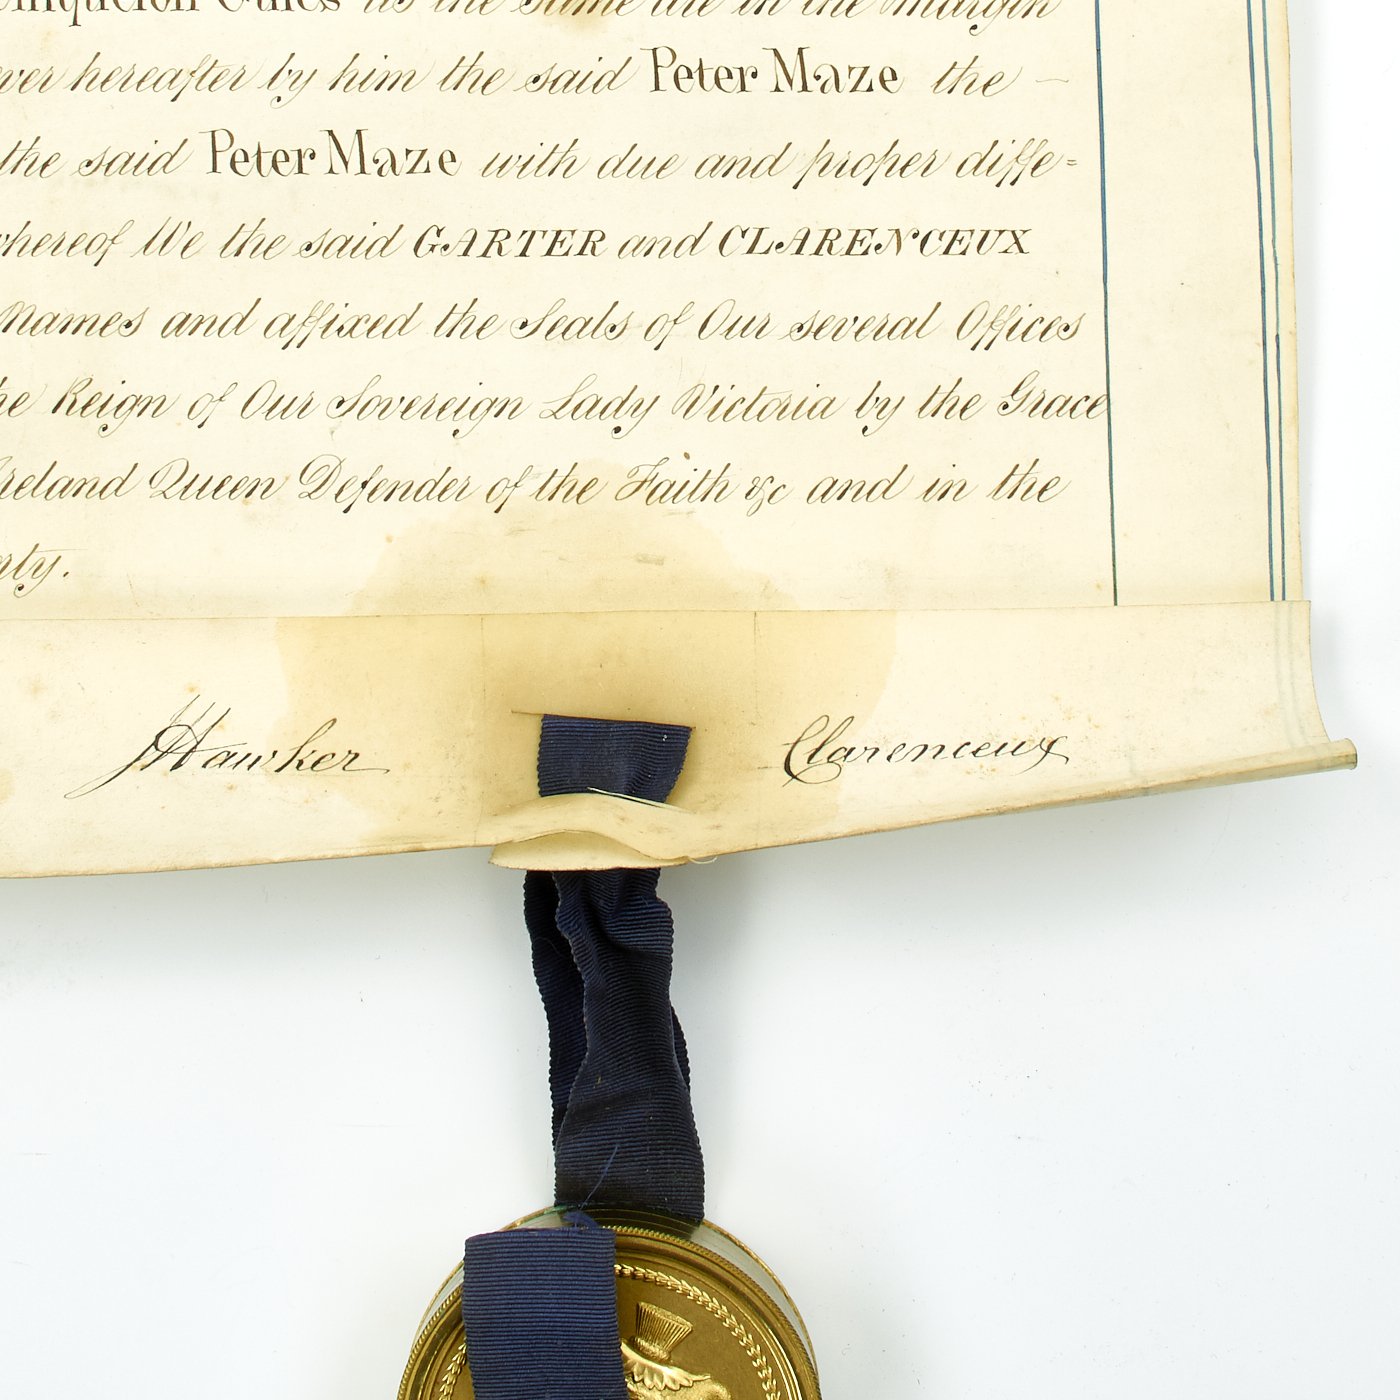 Gules as the same are in the margin
ever hereafter by him the said Peter Maze the —
the said Peter Maze with due and proper diffe=
whereof We the said GARTER and CLARENCEUX
Names and affixed the Seals of Our several Offices
the Reign of Our Sovereign Lady Victoria by the Grace
Ireland Queen Defender of the Faith &c and in the
rty.
JHawker
Clarenceux